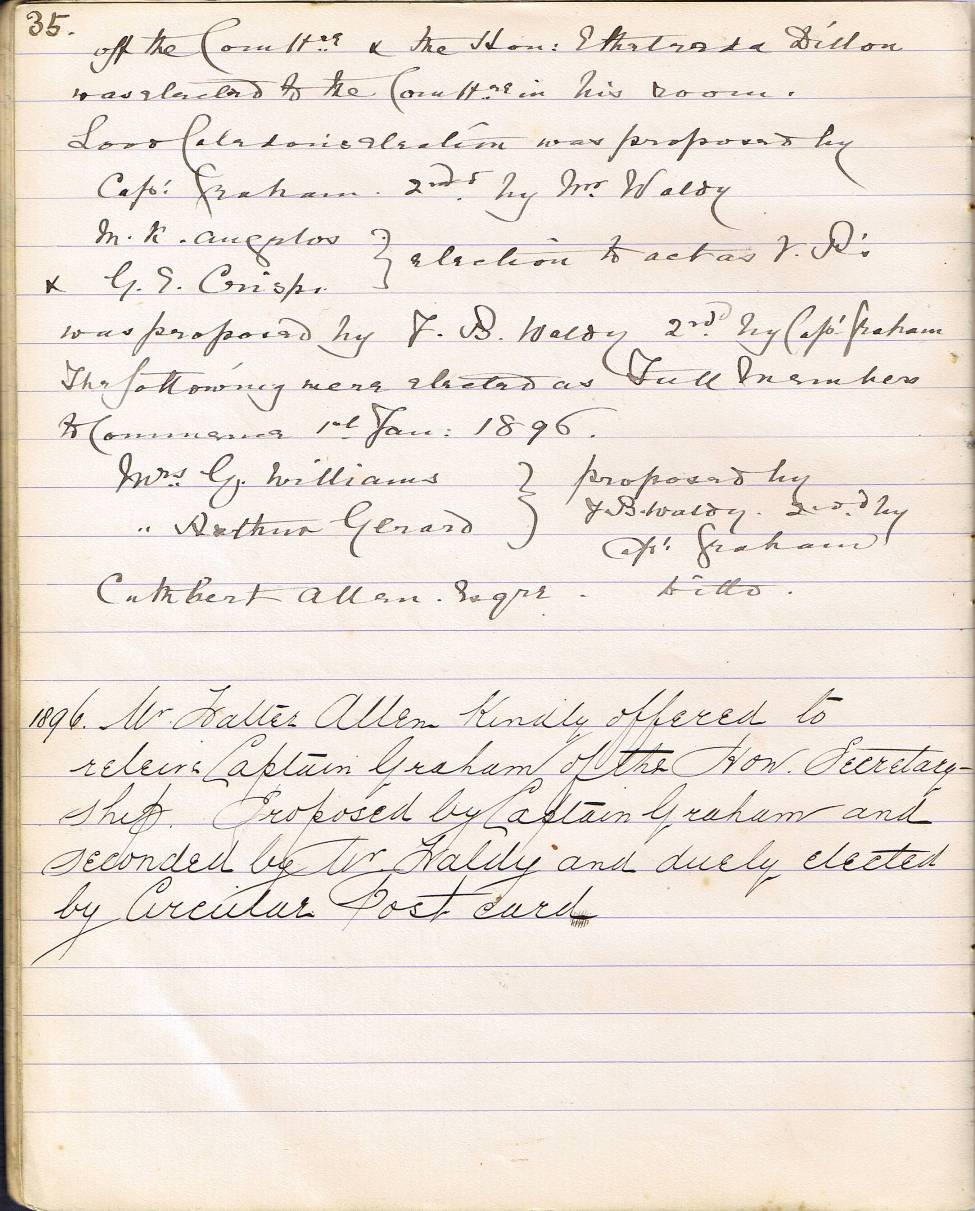 35.
off the Comttee & the Hon: Ethelreda Dillon
was elected to the Comttee in his room.
Lord election was proposed by
Capt. Graham. 2nd. by Mr. Waldy
M. K. Angelos
& G. E. Crisp. } election to act as V. P.s
was proposed by F. B. Waldy 2nd by Capt. Graham
The following were elected as Full Members
to Commence 1st Jan: 1896.
Mrs. G. Williams } proposed by
" Arthur Gerard F B Waldy. 2nd. by
Capt. Graham
Cuthbert Allen. Esqre. Ditto.
1896. Mr. Walter Allen Kindly offered to
releive Captain Graham of the Hon. Secretary-
ship. Proposed by Captain Graham and
seconded by Mr. Waldy and duely elected
by Circular Post card